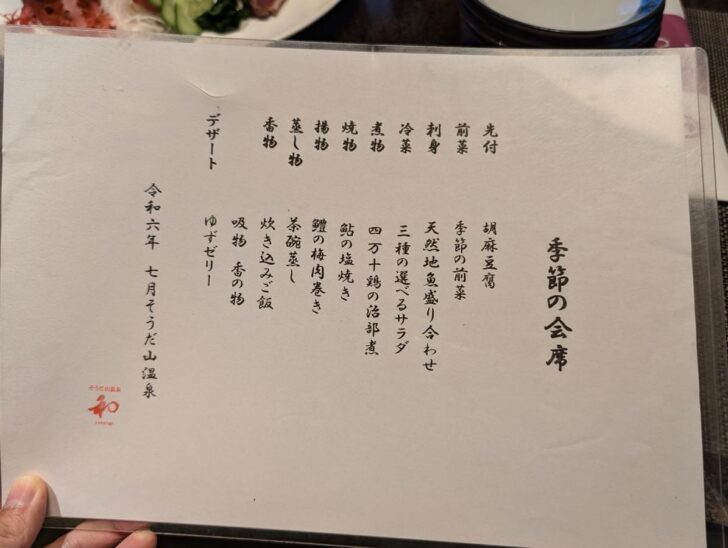 季節の会席
先付 胡麻豆腐
前菜 季節の前菜
刺身 天然地魚盛り合わせ
冷菜 三種の選べるサラダ
煮物 四万十鶏の治部煮
焼物 鮎の塩焼き
揚物 鱧の梅肉巻き
蒸し物 茶碗蒸し
香物 炊き込みご飯
吸物 香の物
デザート ゆずゼリー
令和六年 七月そうだ山温泉
そうだ山温泉
和